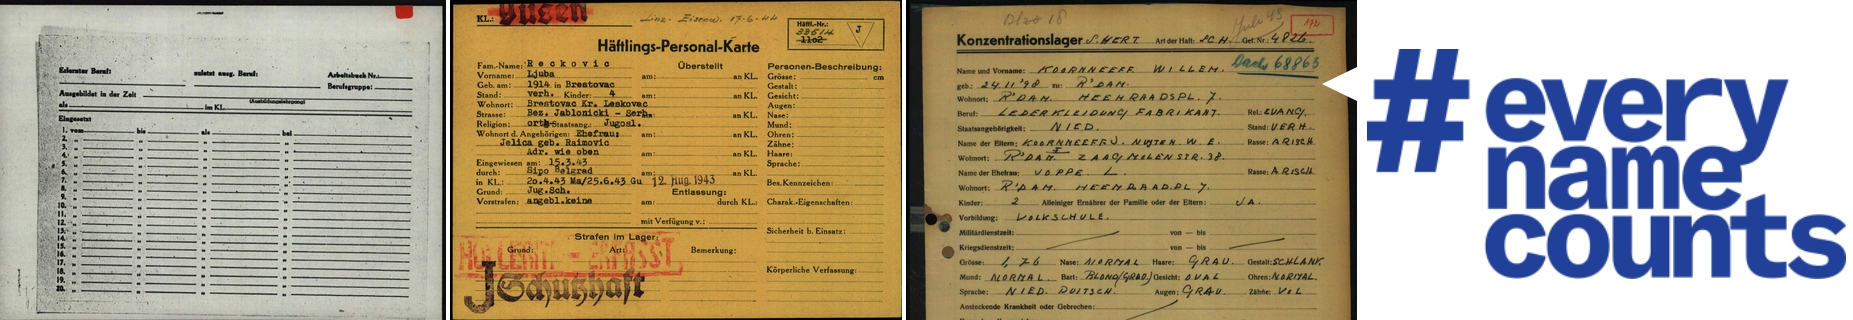 Erlernter Beruf: zuletzt ausg. Beruf: Arbeitsbuch Nr.:
Berufsgruppe:
Ausgebildet in der Zeit
als im KL. (Ausbildungslehrgang)
Eingesetzt
1. vom bis als bei
2.
3.
4.
5.
6.
7.
8.
9.
10.
11.
12.
13.
14.
15.
16.
17.
18.
19.
20.
KL.: Linz- Eisenw. 17-6-44
Häftl.-Nr.:
1102
J
Häftlings-Personal-Karte
Fam.-Name: Reckovic
Vorname: Ljuba
Geb. am: 1914 in Brestovac
Stand: verh. Kinder: 4
Wohnort: Brestovac Kr. Leskovac
Strasse: Bez. Jablonicki - Serb.
Religion: orth Staatsang.: Jugosl.
Wohnort d. Angehörigen: Ehefrau:
Jelica geb. Raimovic
Adr. wie oben
Eingewiesen am: 15.3.43
durch: Sipo Belgrad
in KL.: 20.4.43 Ma/25.6.43 Gu 12. Aug. 1943
Grund: Jug.Sch.
Vorstrafen: angebl.keine
Überstellt
am: an KL.
am: an KL.
am: an KL.
am: an KL.
am: an KL.
am: an KL.
Entlassung:
am: durch KL.:
mit Verfügung v.:
Personen-Beschreibung:
Grösse: cm
Gestalt:
Gesicht:
Augen:
Nase:
Mund:
Ohren:
Zähne:
Haare:
Sprache:
Bes. Kennzeichen:
Charak.-Eigenschaften:
Sicherheit b. Einsatz:
Körperliche Verfassung:
Strafen im Lager:
Grund: Art: Bemerkung:
HOLLERITH - ERFASST
J Schutzhaft
172
Konzentrationslager S'HERT. Art der Haft: SCH. Gef. Nr.: 4826.
Dach 68863
Name und Vorname: KOORNNEEFF WILLEM.
geb.: 24.11'98 zu: R'DAM.
Wohnort: R'DAM. HEEMRAADSPL. 7.
Beruf: LEDERKLEIDUNG FABRIKANT. Rel.: EVANG.
Staatsangehörigkeit: NIED. Stand: VERH.
Name der Eltern: KOORNNEEFF W. E. Rasse: ARISCH
Wohnort: R'DAM. ZAAGMOLENSTR. 38.
Name der Ehefrau: VOPPE L. Rasse: ARISCH
Wohnort: R'DAM. HEEMRAAD.PL 7.
Kinder: 2 Alleiniger Ernährer der Familie oder der Eltern: JA.
Vorbildung: VOLKSCHULE.
Militärdienstzeit: von — bis
Kriegsdienstzeit: von — bis
Grösse: 1,76 Nase: NORMAL Haare: GRAU. Gestalt: SCHLANK.
Mund: NORMAL. Bart: BLOND(GRAU) Gesicht: OVAL Ohren: NORMAL.
Sprache: NIED. DUITSCH. Augen: GRAU. Zähne: VOL
Ansteckende Krankheit oder Gebrechen:
#every
name
counts